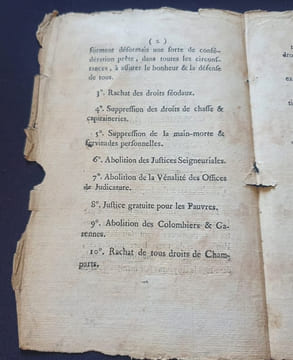 ( 2 )
forment déformais une forte de confé-
dération prête, dans toutes les circonf-
tances, à affurer le bonheur & la défenfe
de tous.
3°. Rachat des droits féodaux.
4°. Suppreffion des droits de chaffe &
capitaineries.
5°. Suppreffion de la main-morte &
fervitudes perfonnelles.
6°. Abolition des Juftices Seigneuriales.
7°. Abolition de la Vénalité des Offices
de Judicature.
8°. Juftice gratuite pour les Pauvres.
9°. Abolition des Colombiers & Ga-
rennes.
10°. Rachat de tous droits de Cham-
parts.